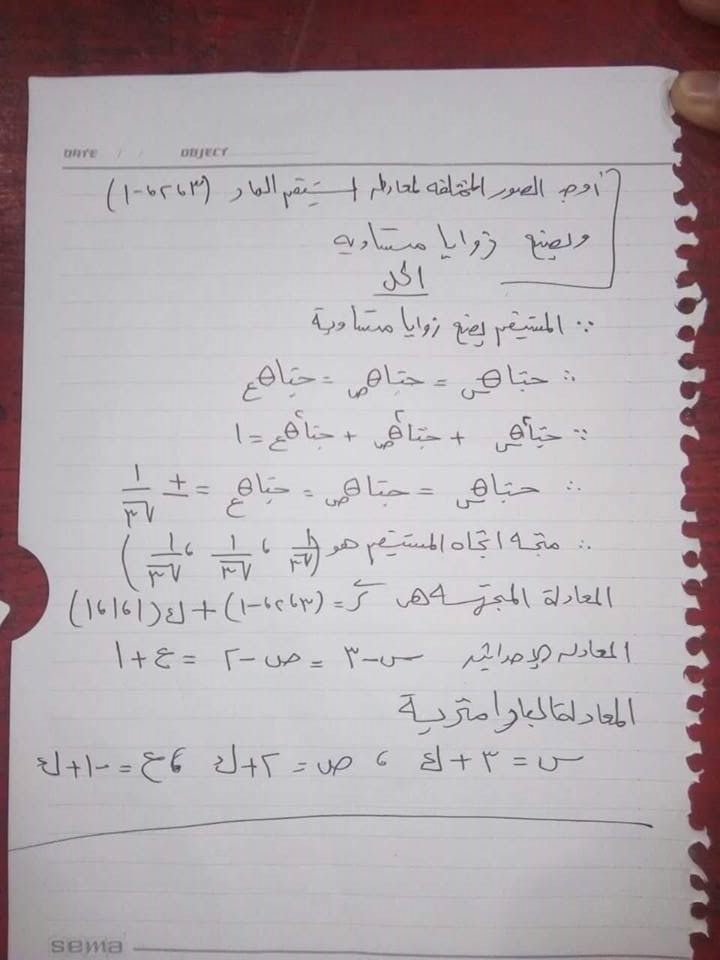 DATE / / OBJECT
أوجد الصور المختلفة لمعادلة المستقيم المار (٣، ٢، -١)
ويصنع زوايا متساوية
الحل
∵ المستقيم يصنع زوايا متساوية
∴ جتاθس = جتاθص = جتاθع
∵ جتا²θس + جتا²θص + جتا²θع = ١
∴ جتاθس = جتاθص = جتاθع = ± ١/√٣
∴ متجه اتجاه المستقيم هو (١/√٣ ، ١/√٣ ، ١/√٣)
المعادلة المتجهة هى ر = (٣، ٢، -١) + ك(١، ١، ١)
المعادلة الإحداثية س - ٣ = ص - ٢ = ع + ١
المعادلة البارامترية
س = ٣ + ك ، ص = ٢ + ك ، ع = -١ + ك
sema